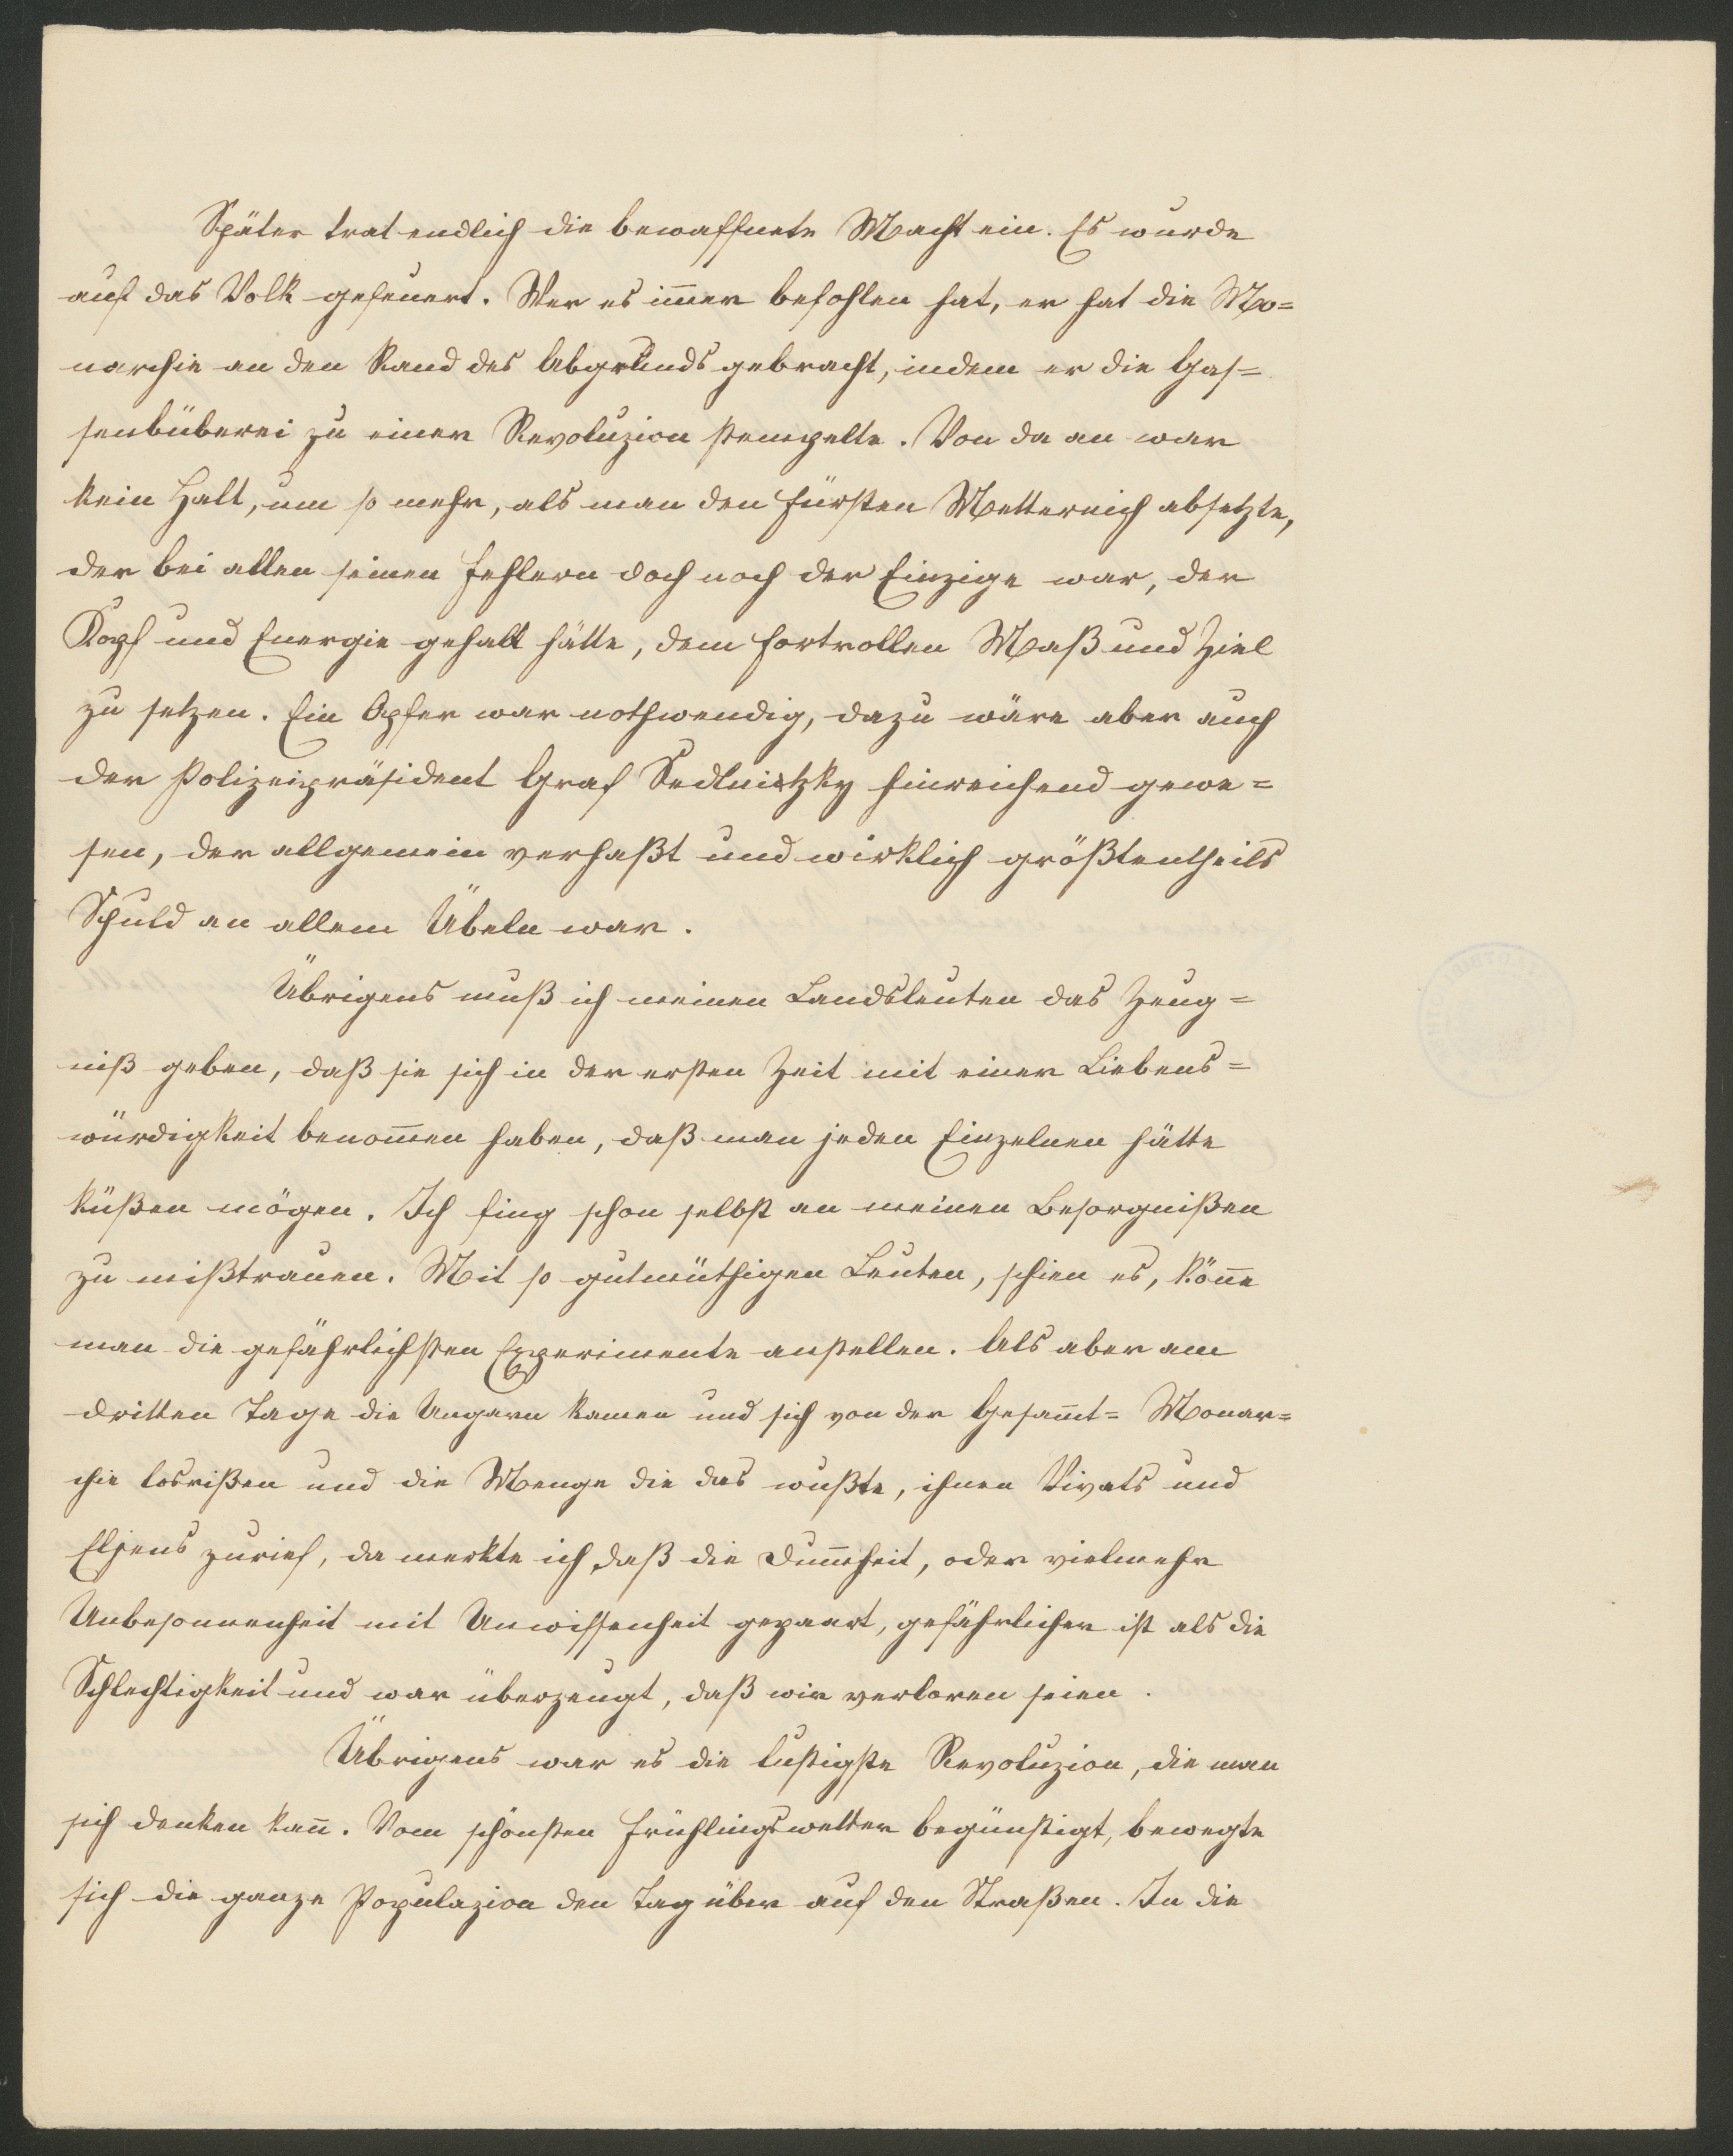 Später trat endlich die bewaffnete Macht ein. Es wurde
auf das Volk gefeuert. Wer es im̅er befohlen hat, er hat die Mo=
narchie an den Rand des Abgrunds gebracht, indem er die Gas=
senbüberei zu einer Revoluzion stempelte. Von da an war
kein Halt, um so mehr, als man den Fürsten Metternich absetzte,
der bei allen seinen Fehlern doch noch der Einzige war, der
Kopf und Energie gehabt hätte, dem Fortrollen Maß und Ziel
zu setzen. Ein Opfer war nothwendig, dazu wäre aber auch
der Polizeipräsident Graf Sedlnitzky hinreichend gewe=
sen, der allgemein verhaßt und wirklich größtentheils
Schuld an allem Übeln war.
Übrigens muß ich meinen Landsleuten das Zeug=
niß geben, daß sie sich in der ersten Zeit mit einer Liebens=
würdigkeit benom̅en haben, daß man jeden Einzelnen hätte
küßen mögen. Ich fing schon selbst an meinen Besorgnißen
zu mißtrauen. Mit so gutmüthigen Leuten, schien es, kön̅e
man die gefährlichsten Experimente anstellen. Als aber am
dritten Tage die Ungarn kamen und sich von der Gesam̅t= Monar=
chie losrißen und die Menge die das wußte, ihnen Vivats und
Eljens zurief, da merkte ich, daß die Dum̅heit, oder vielmehr
Unbesonnenheit mit Unwissenheit gepaart, gefährlicher ist als die
Schlechtigkeit und war überzeugt, daß wir verloren seien.
Übrigens war es die lustigste Revoluzion, die man
sich denken kan̅. Vom schönsten Frühlingswetter begünstigt, bewegte
sich die ganze Populazion den Tag über auf den Straßen. In die